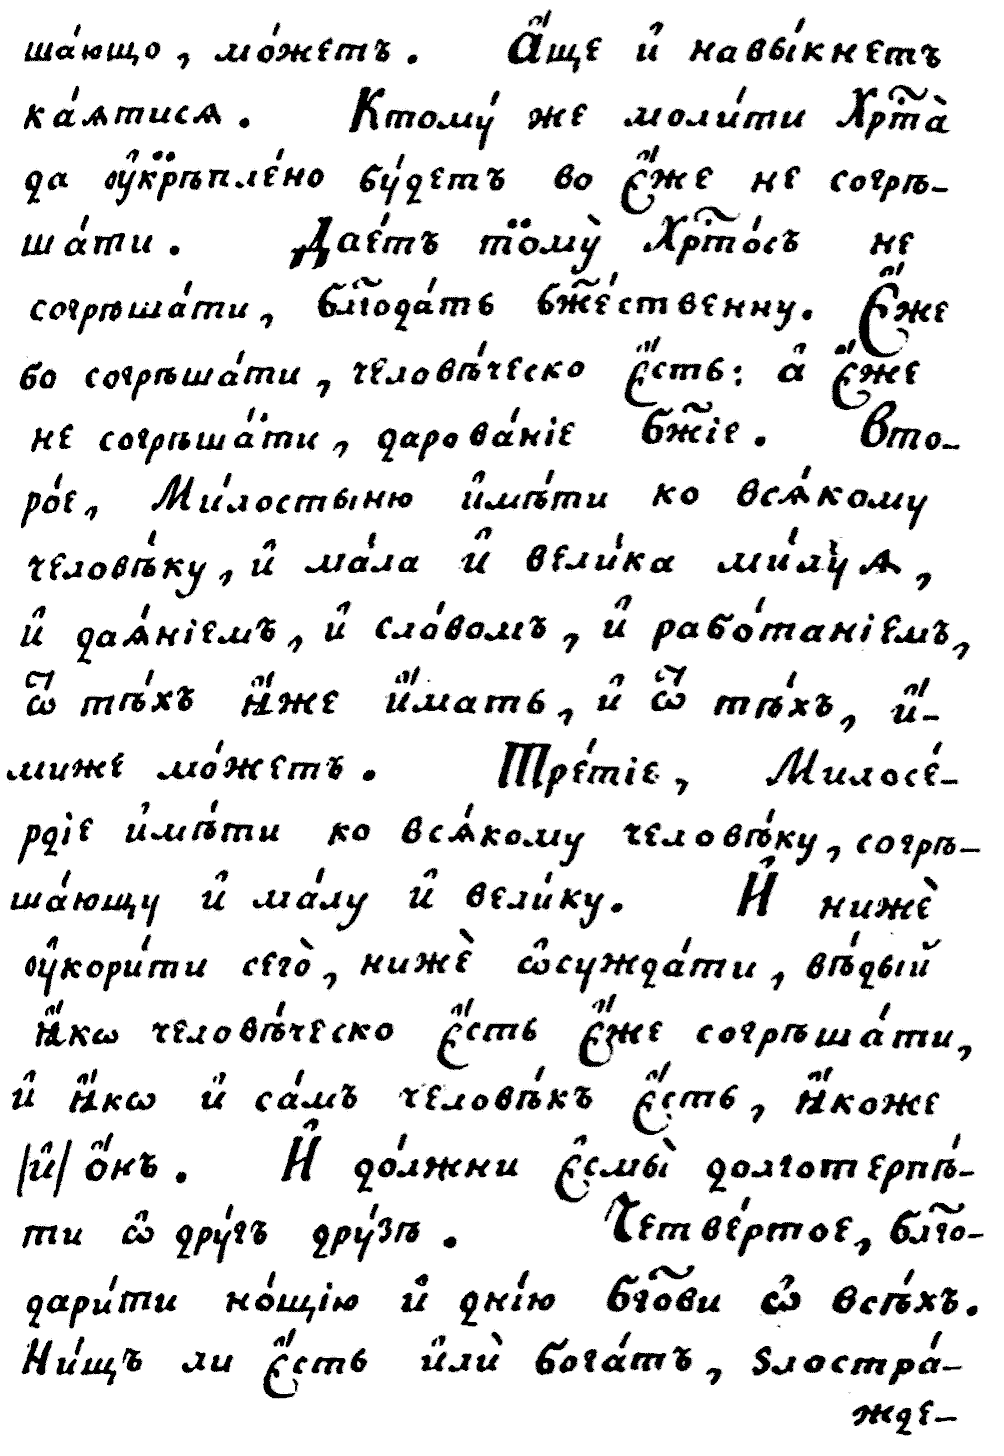 ша́ющо, мо́жетъ. А҆́ще и҆ навы́кнетъ
ка́ѧтисѧ. Ктому́ же моли́ти Хрⷭ҇та̀
да ᲂу҆крѣпле́но бу́детъ во є҆́же не согрѣ-
ша́ти. Дае́тъ тому̀ Хрⷭ҇то́съ не
согрѣша́ти, блг҃ода́ть бж҃е́ственну. Є҆́же
бо согрѣша́ти, человѣ́ческо є҆́сть: а҆ є҆́же
не согрѣша́ти, дарова́нїе бж҃їе. Вто-
ро́е, Ми́лостыню и҆мѣ́ти ко всѧ́кому
человѣ́ку, и҆ ма́ла и҆ вели́ка ми́луѧ,
и҆ даѧ́нїемъ, и҆ сло́вомъ, и҆ рабо́танїемъ,
ѿ тѣ́хъ ꙗ҆́же и҆́мать, и҆ ѿ тѣ́хъ, и҆́-
миже мо́жетъ. Тре́тїе, Милосе́-
рдїе и҆мѣ́ти ко всѧ́кому человѣ́ку, согрѣ-
ша́ющу и҆ ма́лу и҆ вели́ку. И҆ нижѐ
ᲂу҆кори́ти сего̀, нижѐ ѡ҆сужда́ти, вѣ́дый
ꙗ҆́кѡ человѣ́ческо є҆́сть є҆́же согрѣша́ти,
и҆ ꙗ҆́кѡ и҆ са́мъ человѣ́къ є҆́сть, ꙗ҆́коже
/и҆/ о҆́нъ. И҆ до́лжни є҆смы̀ долготерпѣ́-
ти ѡ҆ дру́гъ дру́зѣ. Четве́ртое, блг҃о-
дари́ти но́щїю и҆ дні́ю бг҃ови ѡ҆ всѣ́хъ.
Ни́щъ ли є҆́сть и҆лѝ бога́тъ, ѕлостра́-
жде-